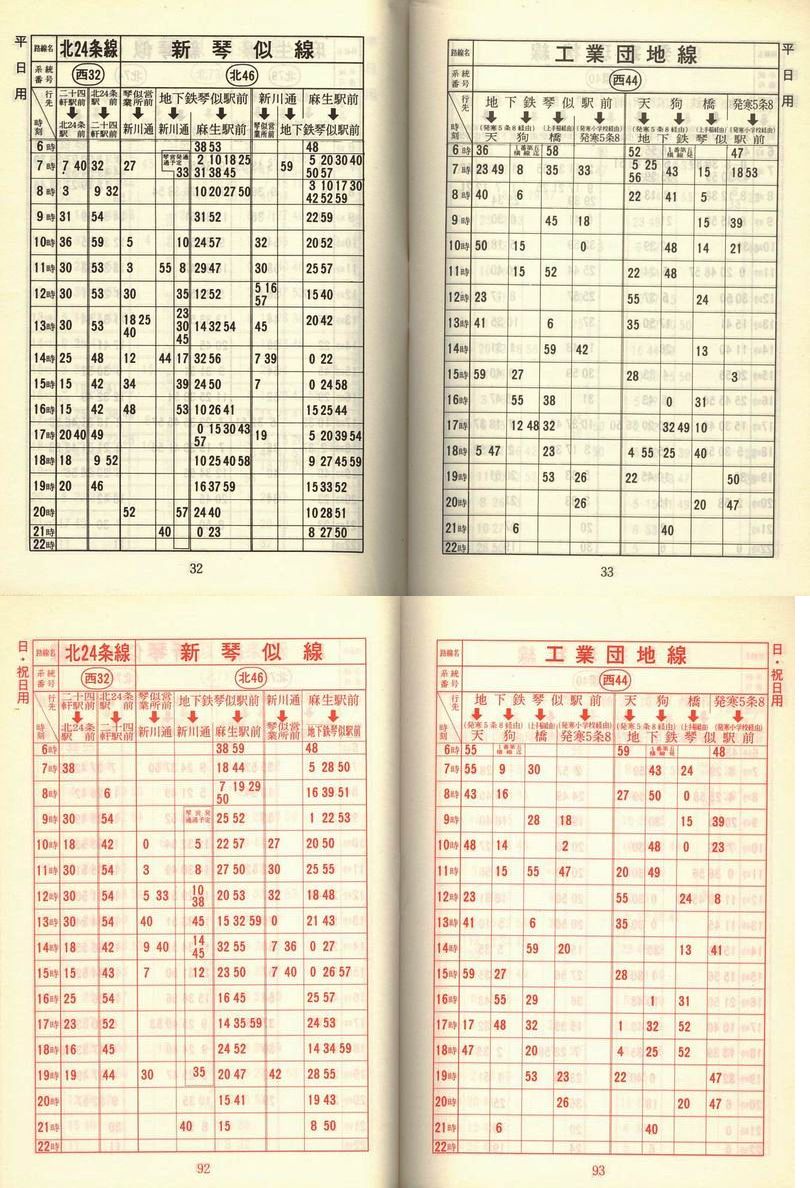 平日用
路線名 北24条線 新琴似線
系統番号 西32 北46
行先 二十四軒駅前 北24条駅前 琴似営業所前 地下鉄琴似駅前 新川通 麻生駅前
時刻 北24条駅前 二十四軒駅前 新川通 新川通 麻生駅前 琴似営業所前 地下鉄琴似駅前
6時 38 53 48
7時 7 40 32 27 33 2 10 18 25 31 38 45 59 5 20 30 40 50 57
8時 3 9 32 10 20 27 50 3 10 17 30 42 52 59
9時 31 54 31 52 22 59
10時 36 59 5 10 24 57 32 20 52
11時 30 53 3 55 8 29 47 30 25 57
12時 30 53 30 35 12 52 5 16 57 15 40
13時 30 53 18 25 40 23 30 45 14 32 54 45 20 42
14時 25 48 12 44 17 32 56 7 39 0 22
15時 15 42 34 39 24 50 7 0 24 58
16時 15 42 48 53 10 26 41 15 25 44
17時 20 40 49 0 15 30 43 57 19 5 20 39 54
18時 18 9 52 10 25 40 58 9 27 45 59
19時 20 46 16 37 59 15 33 52
20時 52 57 24 40 10 28 51
21時 40 0 23 8 27 50
22時
32
平日用
路線名 工業団地線
系統番号 西44
行先 地下鉄琴似駅前 天狗橋 発寒5条8
(発寒5条8経由) (上手稲経由) (発寒小学校経由) (発寒5条8経由) (上手稲経由) (発寒小学校経由)
時刻 天狗橋 発寒5条8 地下鉄琴似駅前
6時 36 58 52 47
7時 23 49 8 35 33 5 25 56 43 15 18 53
8時 40 6 22 41 5
9時 45 18 15 39
10時 50 15 0 48 14 21
11時 15 52 22 48
12時 23 55 24
13時 41 6 35
14時 59 42 13
15時 59 27 28 3
16時 55 38 0 31
17時 12 48 32 32 49 10
18時 5 47 23 4 55 25 40
19時 53 26 22 50
20時 26 20 47
21時 6 40
22時
33
日・祝日用
路線名 北24条線 新琴似線
系統番号 西32 北46
行先 二十四軒駅前 北24条駅前 琴似営業所前 地下鉄琴似駅前 新川通 麻生駅前
時刻 北24条駅前 二十四軒駅前 新川通 新川通 麻生駅前 琴似営業所前 地下鉄琴似駅前
6時 38 59 48
7時 38 18 44 5 28 50
8時 6 7 19 29 50 16 39 51
9時 30 54 25 52 1 22 53
10時 18 42 0 5 22 57 27 20 50
11時 30 54 3 8 27 50 30 25 55
12時 30 54 5 33 10 38 20 53 32 18 48
13時 30 54 40 45 15 32 59 0 21 43
14時 18 42 9 40 14 45 32 55 7 36 0 27
15時 15 43 7 12 23 50 7 40 0 26 57
16時 25 54 16 45 25 57
17時 23 52 14 35 59 24 53
18時 16 45 24 52 14 34 59
19時 19 44 30 35 20 47 42 28 55
20時 15 41 19 43
21時 40 15 8 50
22時
92
日・祝日用
路線名 工業団地線
系統番号 西44
行先 地下鉄琴似駅前 天狗橋 発寒5条8
(発寒5条8経由) (上手稲経由) (発寒小学校経由) (発寒5条8経由) (上手稲経由) (発寒小学校経由)
時刻 天狗橋 発寒5条8 地下鉄琴似駅前
6時 55 59 48
7時 55 9 30 43 24
8時 43 16 27 50 0
9時 28 18 15 39
10時 48 14 2 48 0 23
11時 15 55 47 20 49
12時 23 55 24 8
13時 41 6 35
14時 59 20 13 41
15時 59 27 28
16時 55 29 1 31
17時 17 48 32 1 32 52
18時 47 20 4 25 52
19時 53 23 22 47
20時 26 20 47
21時 6 40
22時
93